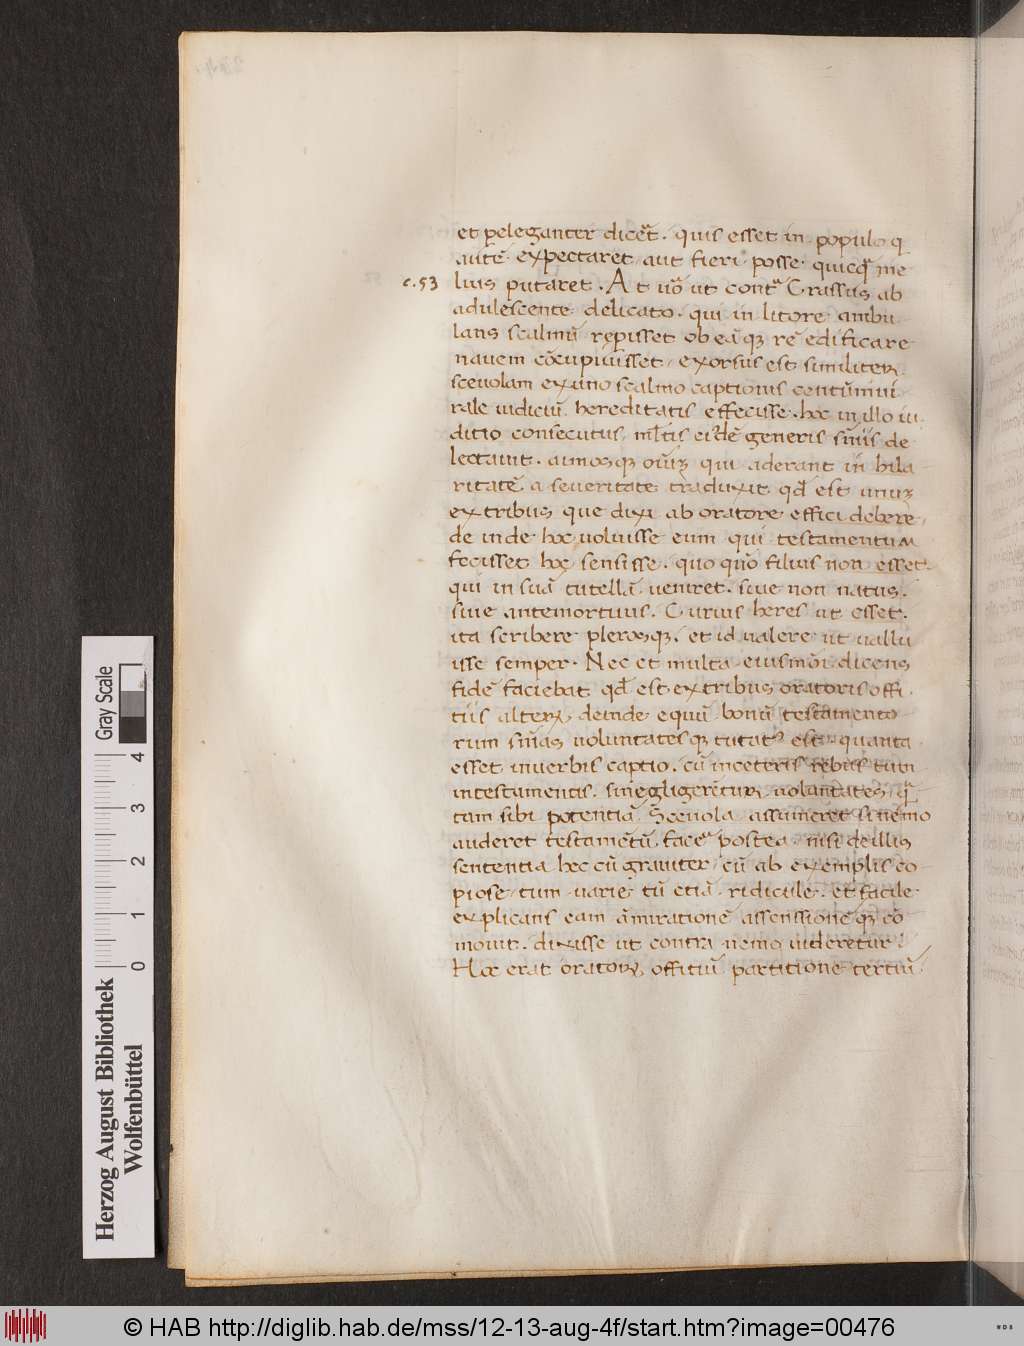 et p̲eleganter dicer̃t . quis esset in populo q
autē expectaret aut fieri posse quicq̃ me
c. 53 lius putaret . At ũo ut cont^a Crassus ab
adulescente delicato . qui in litore ambu
lans scalmũ rep̲isset ob eã q; rē edificare
navem cõcupivisset exorsus est similiter
scevolam ex uno scalmo captionis centũmvi
rale iudiciũ hereditatis effecisse . hoc in illo iu
ditio consecutus ml̃tis eiusdē generis sñiis de
lectavit . aimosq; oium qui aderant in hila
ritatē a severitate traduxit qđ est unum
ex tribus que dixi ab oratore effici debere
de inde hoc voluisse eum qui testamentum
fecisset hoc sensisse . quo quõ filius non esset
qui in suã tutellã veniret . sive non natus .
sive antemortuus . Curius heres ut esset .
ita scribere plerosq; . et id valere ut vallu
isse semper . Nec et multa eiusmõi dicens
fidē faciebat qđ est ex tribus oratoris offi
tiis alterum deinde equũ bonũ testamento
rum sñias voluntatesq; tutatus est quanta
esset in verbis captio . cũ in ceteris rebus tum
in testamentis . si negligerētur voluntates . q̃
tam sibi potentiã Scevola assumeret si nemo
auderet testamētũ facer̃ postea nisi de illis
sententia hec cũ graviter cũ ab exemplis co
piose tum varie tũ etiã ridicule . et facile
explicans eam ãmirationē assenssionēq; cõ
movit . dixisse ut contra nemo videretur .
Hoc erat oratorum offitiũ partitione tertiũ .
Herzog August Bibliothek
Wolfenbüttel
0 1 2 3 4
Gray Scale
© HAB http://diglib.hab.de/mss/12-13-aug-4f/start.htm?image=00476